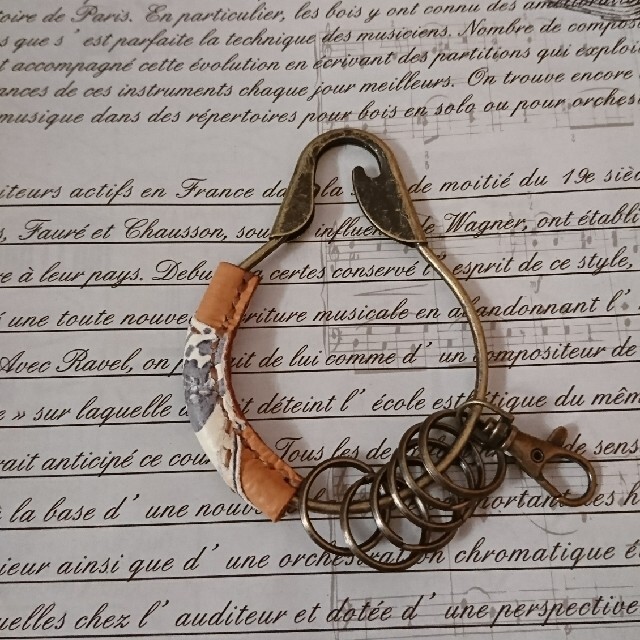 oire de Paris. En particulier, les bois y ont connu des
s que s'est parfaite la technique des musiciens. Nombre de
t accompagné cette évolution en écrivant des partitions qui
ances de ces instruments chaque jour meilleurs. On trouve encore
musique dans des répertoires pour bois en solo ou pour
iteurs actifs en France la de moitié du 19e
s, Fauré et Chausson, de Wagner, ont
e à leur pays. a certes conservé l'esprit de ce style,
é une toute musicale en l'
Avec Ravel, on de lui comme d'un compositeur de
e » sur laquelle déteint l'école du
rait anticipé ce Tous les de de
la base d'une
ieur ainsi que d'une orchestration chromatique é
uelles chez l'auditeur et dotée d'une perspective